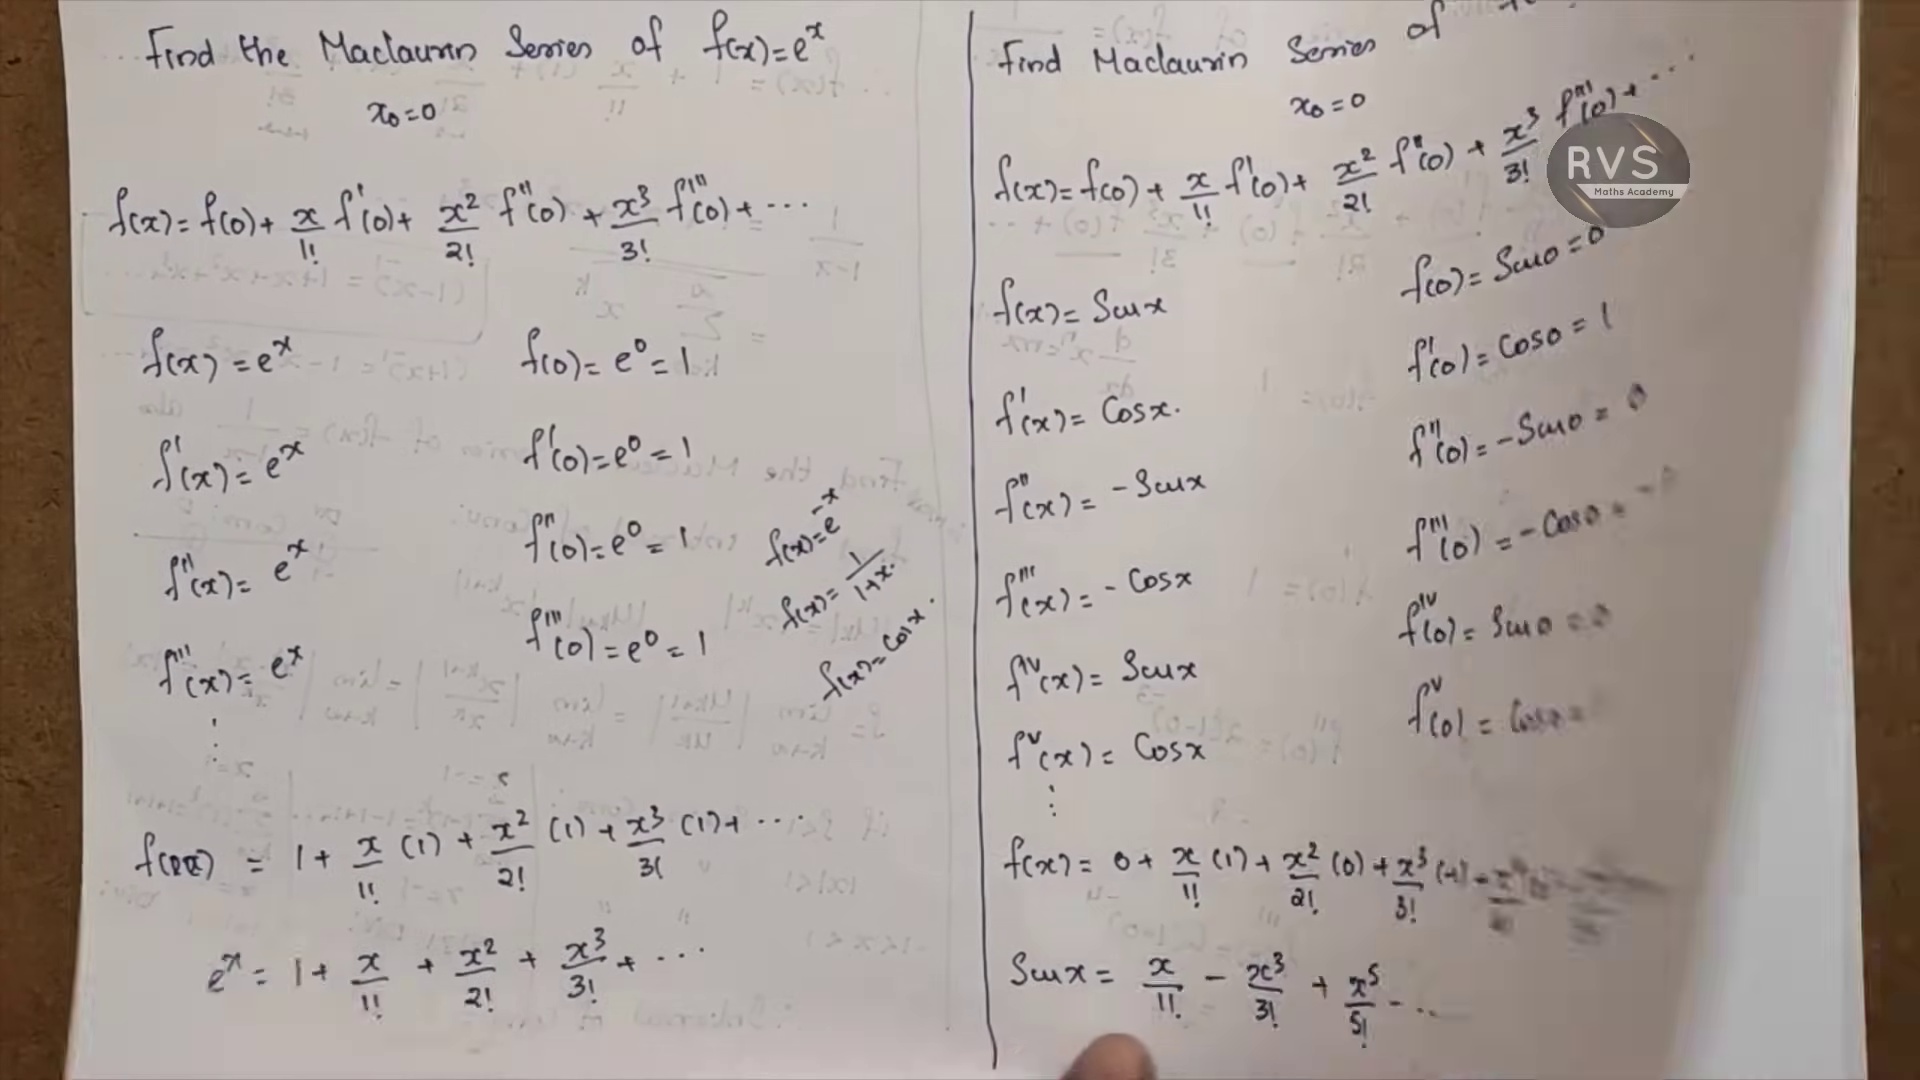 Find the Maclaurin Series of f(x)=e^x
x₀=0
f(x)=f(0)+ x/1! f'(0)+ x²/2! f''(0) + x³/3! f'''(0)+ ...
f(x)=e^x f(0)=e⁰=1
f'(x)=e^x f'(0)=e⁰=1
f''(x)= e^x f''(0)=e⁰=1
f'''(x)= e^x f'''(0)=e⁰=1
⋮
f(x)=e^-x
f(x)= 1/1+x.
f(x)=cosx.
f(x) = 1+ x/1! (1) + x²/2! (1) + x³/3! (1)+ ...
e^x = 1+ x/1! + x²/2! + x³/3! + ...
Find Maclaurin Series of
x₀=0
f(x)=f(0)+ x/1! f'(0)+ x²/2! f''(0) + x³/3! f'''(0)+ ...
RVS
Maths Academy
f(x)= Sinx f(0)= Sin0=0
f'(x)= Cosx. f'(0)= Cos0=1
f''(x)= -Sinx f''(0)= -Sin0= 0
f'''(x)= -Cosx f'''(0)= -Cos0=
f^IV(x)= Sinx f^IV(0)= Sin0=0
f^V(x)= Cosx f^V(0)= Cos0=
⋮
f(x)= 0+ x/1! (1)+ x²/2! (0)+ x³/3! (-1)
Sinx= x/1! - x³/3! + x⁵/5! - ...